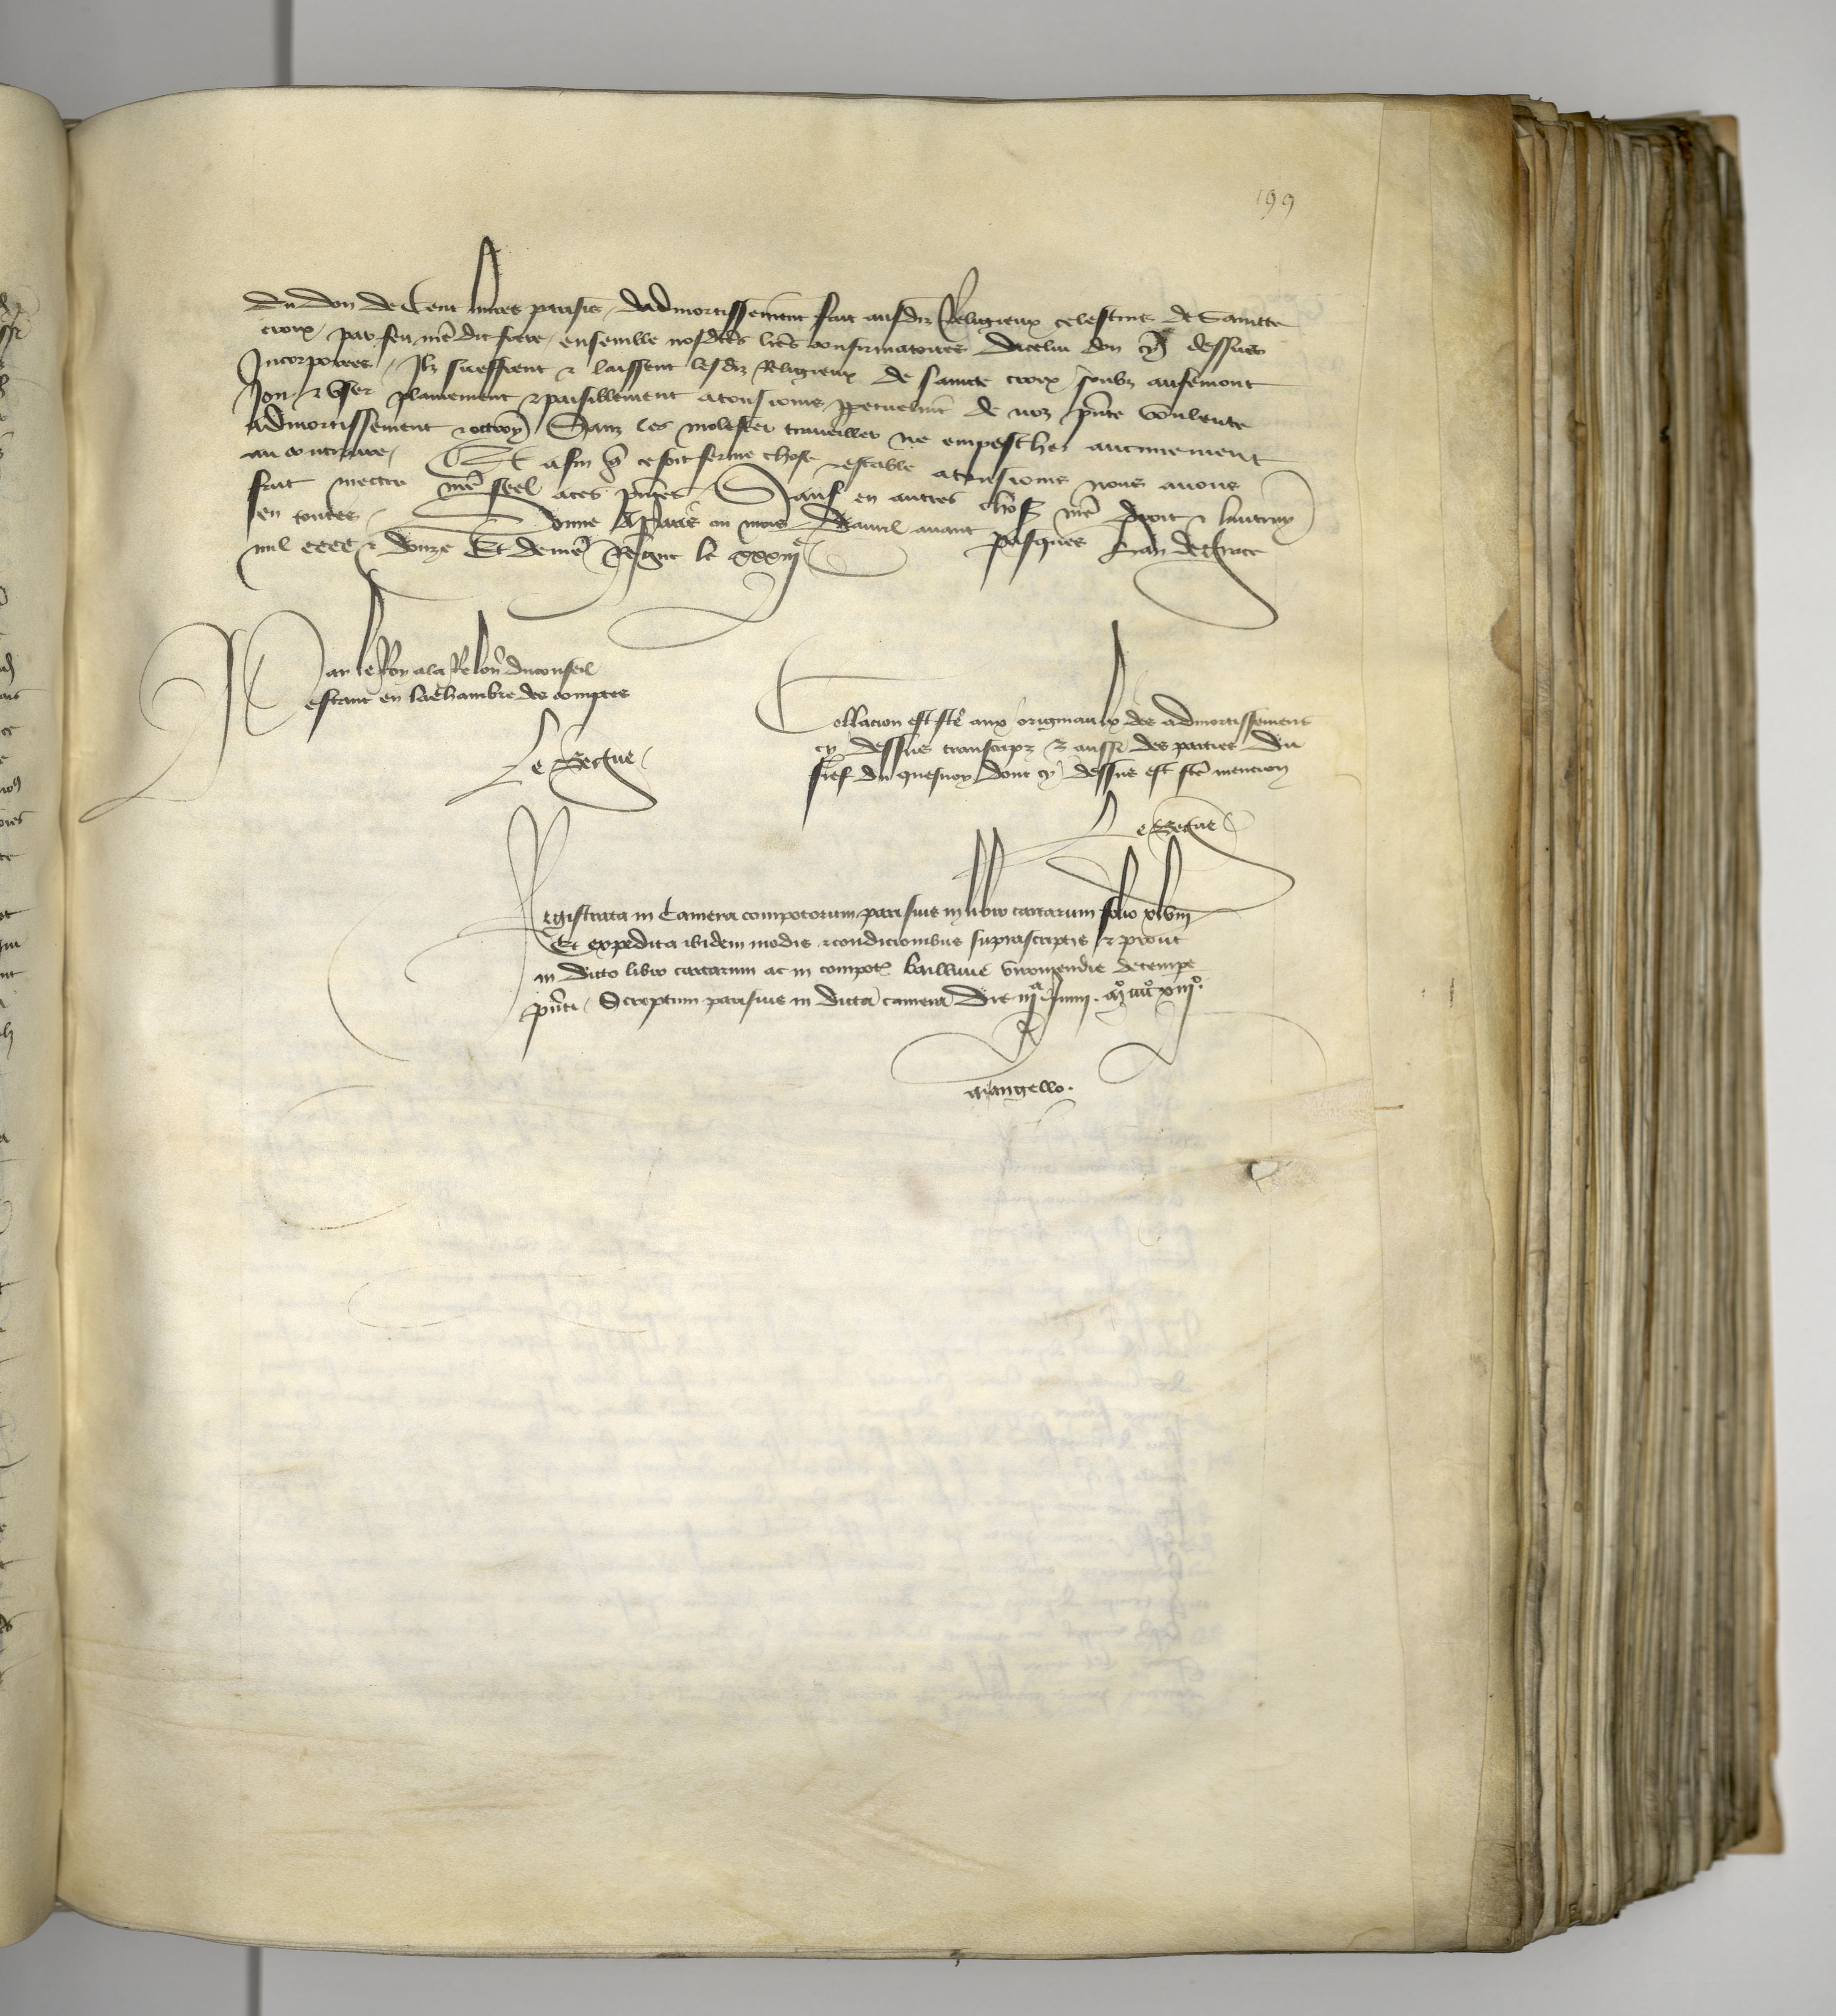 199
du don de Cent livres parisis dadmortissement fait ausdiz Religieux celestins de Saincte
croix par feu nre dit frere ensemble nosdctes lres confirmatoires dicelui don cy dessus
Incorporees Ilz sueffrent & laissent lesdiz Religieux de saincte croix soubz aufemont
Joir & User plainement & paisiblement atousiours ppetuelmt de noz pnte voulente
admortissement & ottroy Sanz les molester traveiller ne empescher aucunement
au contraire Et afin q ce soit ferme chose & estable atousiours nous avons
fait mectre nre seel aces pntes Sauf en autres choses nre droit & lautruy
en toutes Donne A Paris ou mois davril avant pasques Lan de grace
mil cccc & douze Et de nre Regne le xxxiije
Par le Roy ala Relon du conseil
estant en la chambre des comptes
Le Begue
Collacion est fte aux originaulx des admortissement
cy dessus transcripz & aussi des parties du
fief du quesnoy dont cy dessus est fte mencion
Le Begue
Registrata in Camera compotorum parisius in libro cartarum folio xlviij
Et expedita ibidem modis & condicionibus suprascriptis & prout
in dicto libro cartarum ac in compot baillivie viromendie de tempe
pnti Scriptum parisius in dicta camera die iija Junii mo iiijc xiijo
Mangello